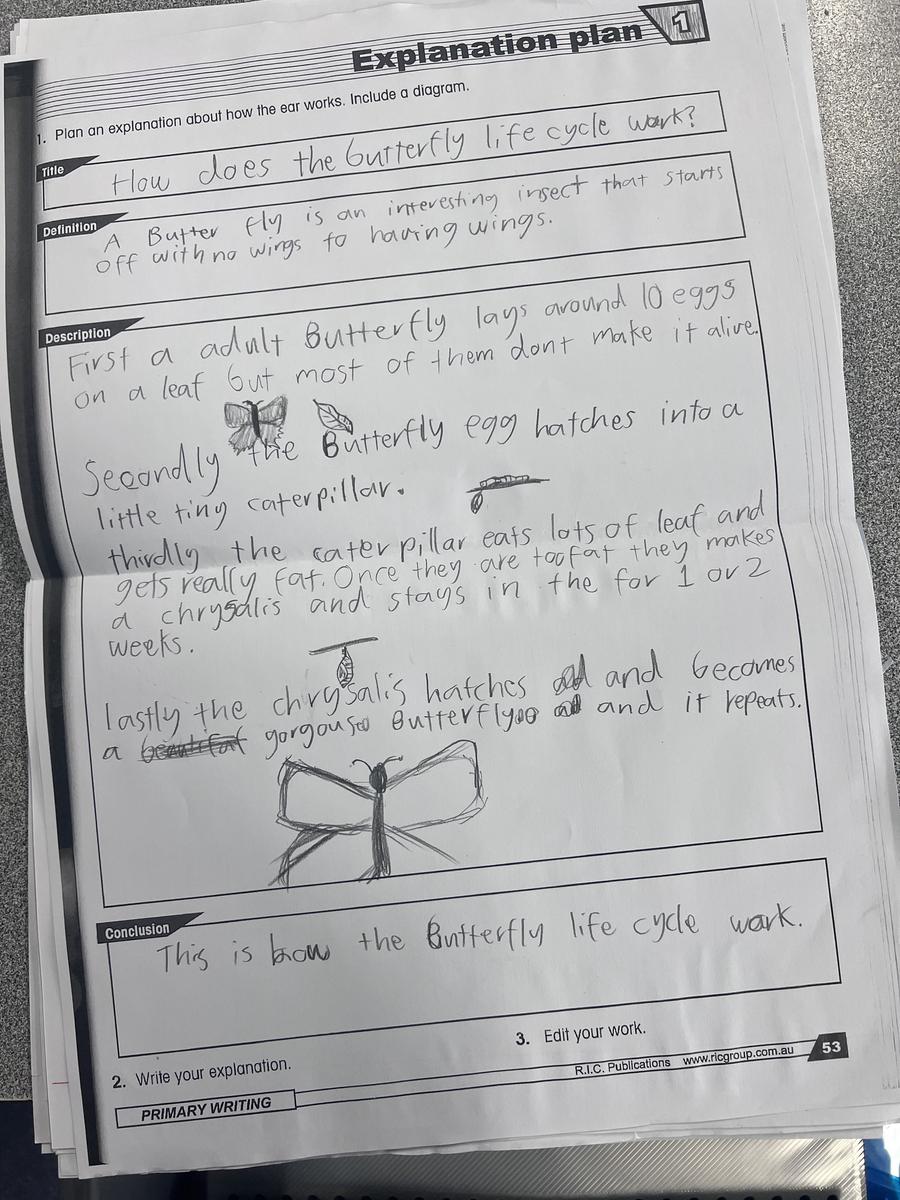 Explanation plan 1
1. Plan an explanation about how the ear works. Include a diagram.
Title
How does the butterfly life cycle work?
Definition
A Butter fly is an interesting insect that starts
off with no wings to having wings.
Description
First a adult Butterfly lays around 10 eggs
on a leaf but most of them dont make it alive.
Secondly the Butterfly egg hatches into a
little tiny caterpillar.
thirdly the cater pillar eats lots of leaf and
gets really fat. Once they are too fat they makes
a chrysalis and stays in the for 1 or 2
weeks.
lastly the chrysalis hatches and becomes
a gorgouse Butterfly and it repeats.
Conclusion
This is how the Butterfly life cycle work.
2. Write your explanation.
3. Edit your work.
PRIMARY WRITING
R.I.C. Publications www.ricgroup.com.au
53